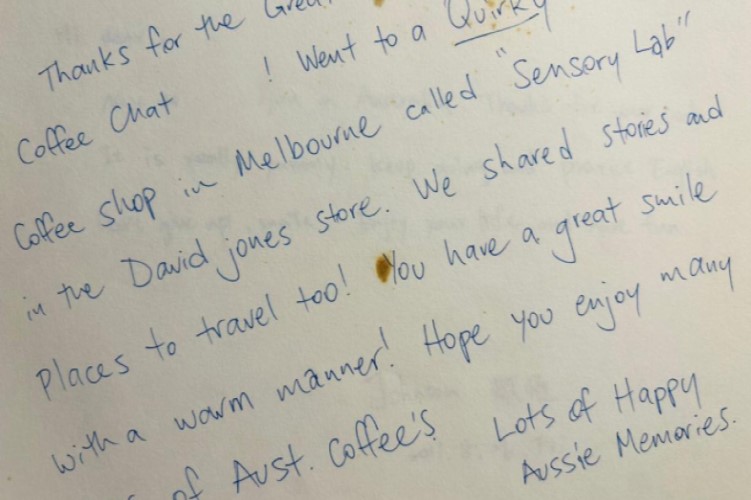 Thanks for the Great
Coffee Chat ! Went to a Quirky
Coffee shop in Melbourne called "Sensory Lab"
in the David jones store. We shared stories and
Places to travel too! You have a great smile
with a warm manner! Hope you enjoy many
of Aust. Coffee's Lots of Happy
Aussie Memories.